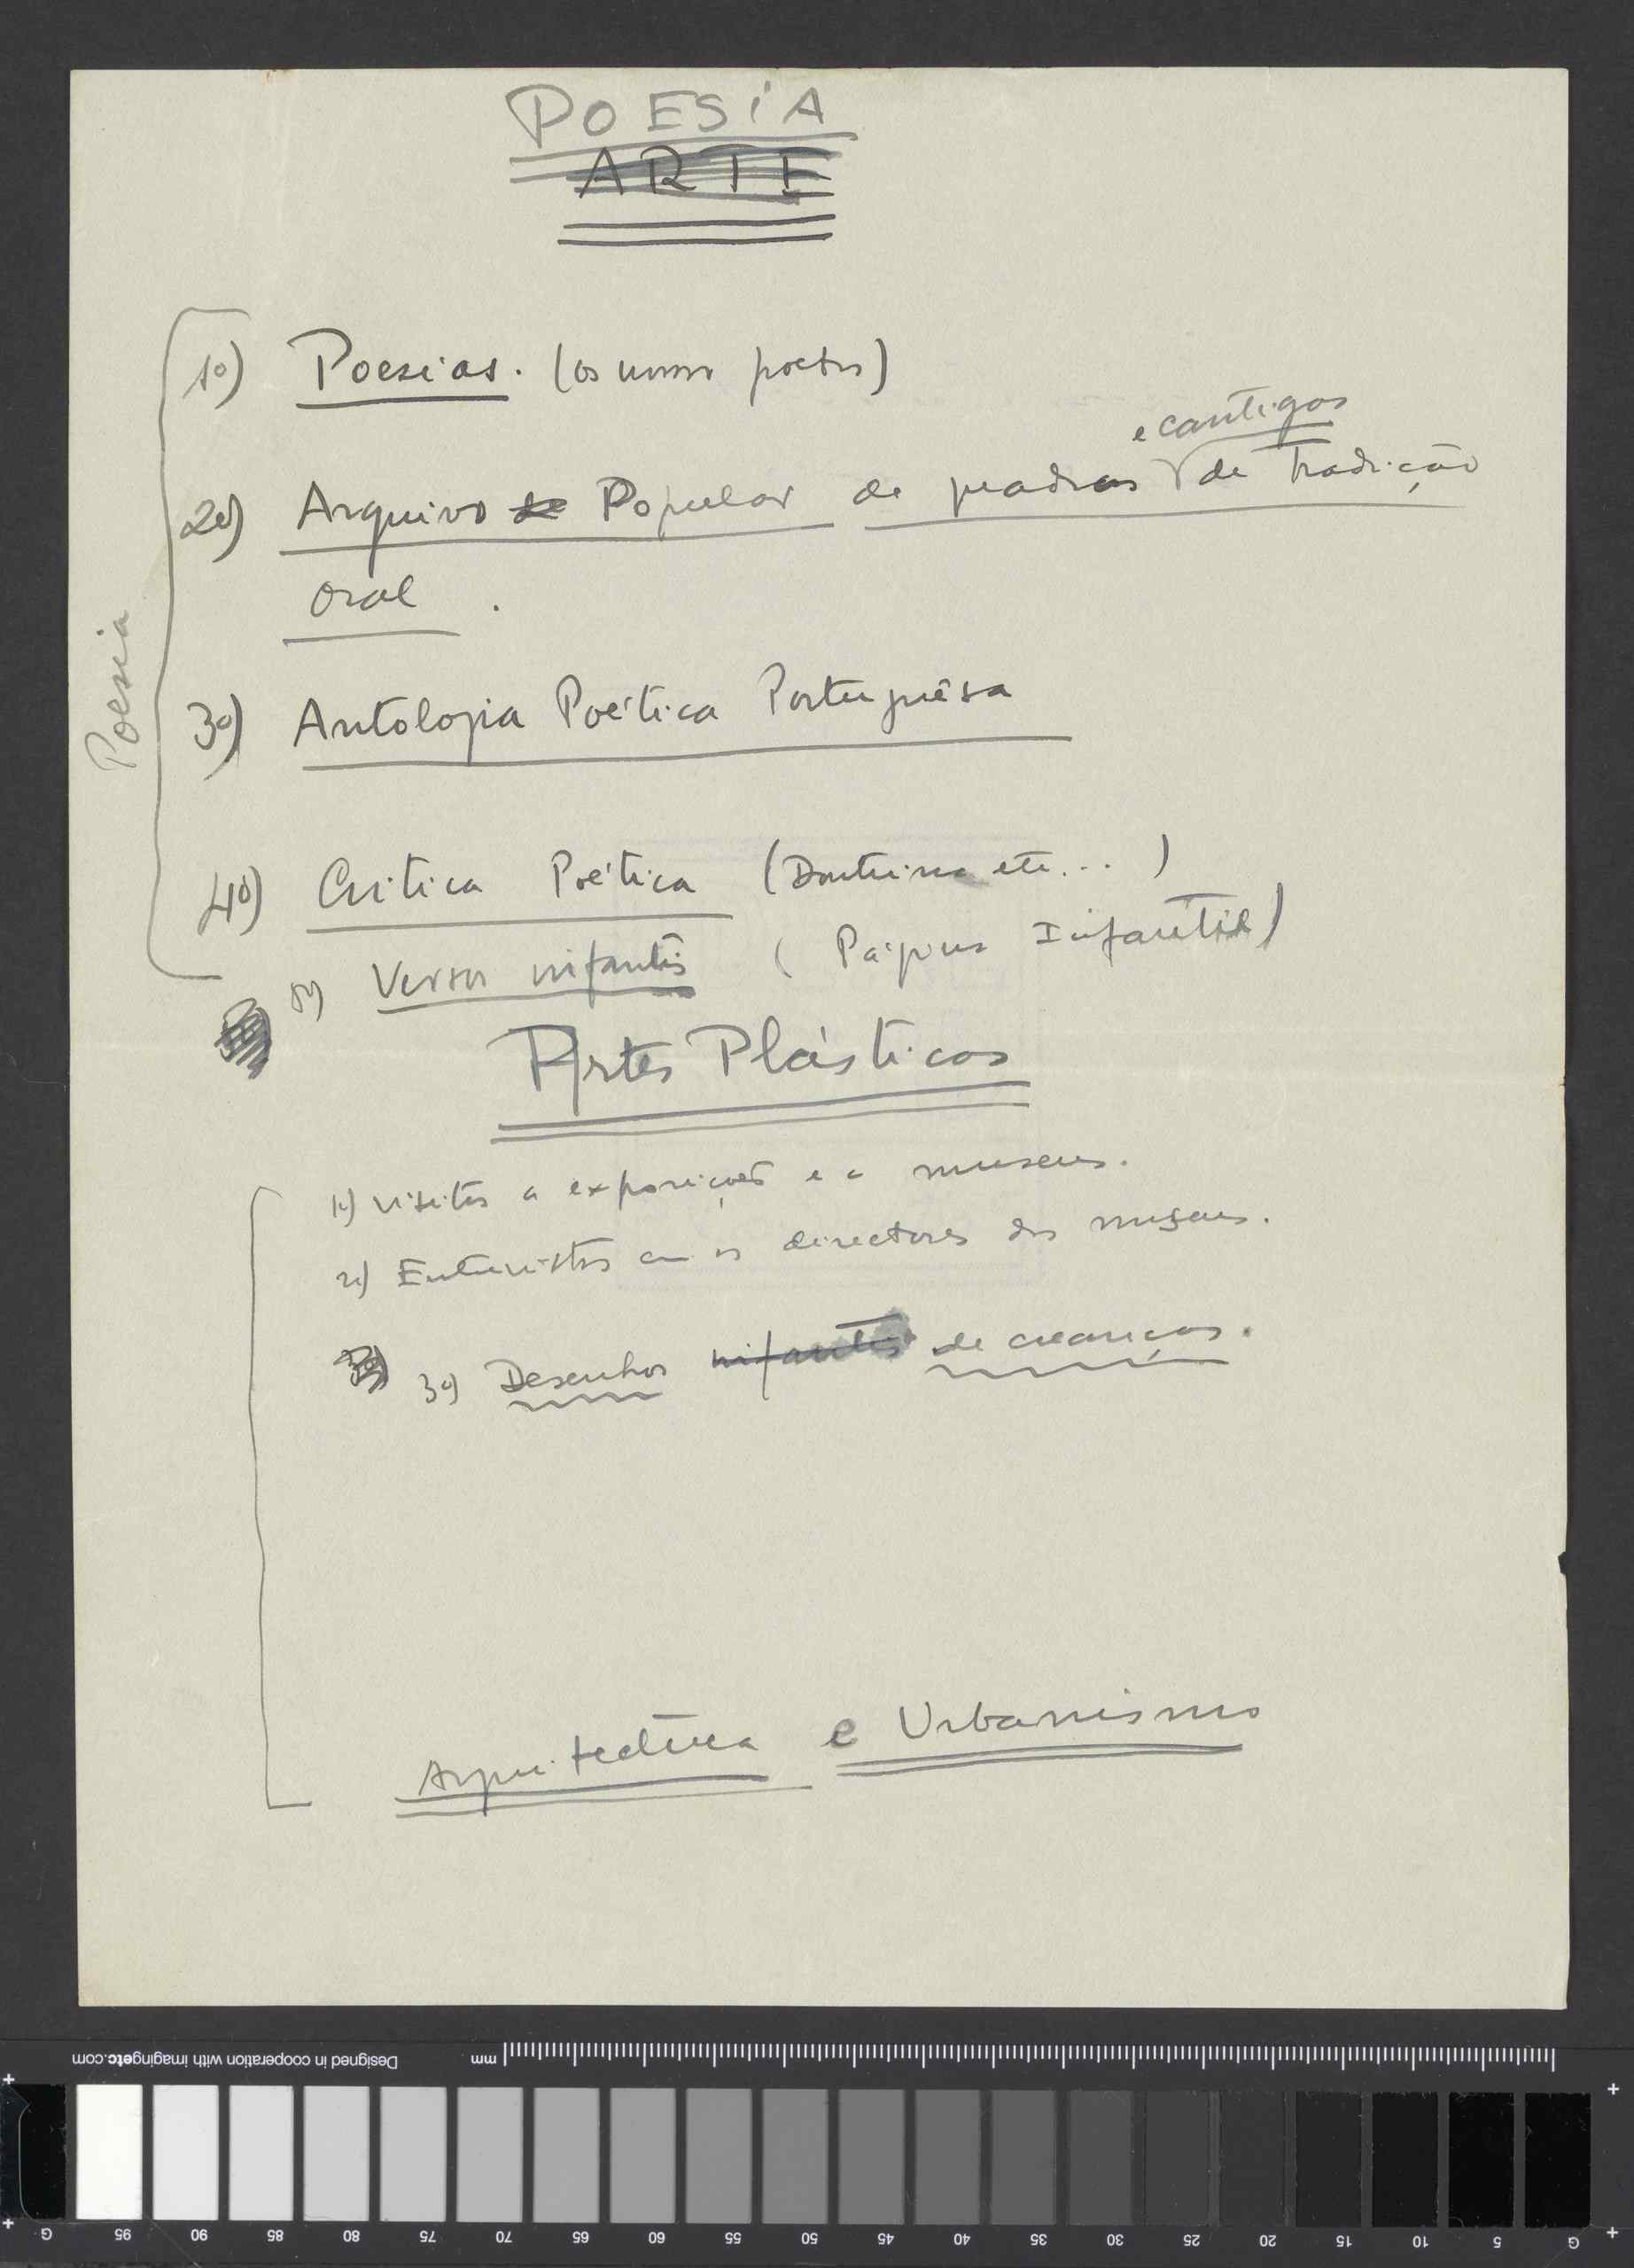 POESIA
ARTE
Poesia
1º) Poesias. (os nossos poetas)
e cantigas
2º) Arquivo de Popular de quadras de Tradição
oral.
3º) Antologia Poética Portuguêsa
4º) Critica Poética (Doutrina etc...)
5º) Versos infantis (Página Infantil)
Artes Plásticas
1º) Visitas a exposições e a museus.
2º) Entrevistas com os directores dos museus.
3º) Desenhos infantis de creanças.
Arquitectura e Urbanismo
Designed in cooperation with imagingetc.com
mm
G 95 90 85 80 75 70 65 60 55 50 45 40 35 30 25 20 15 10 5 G